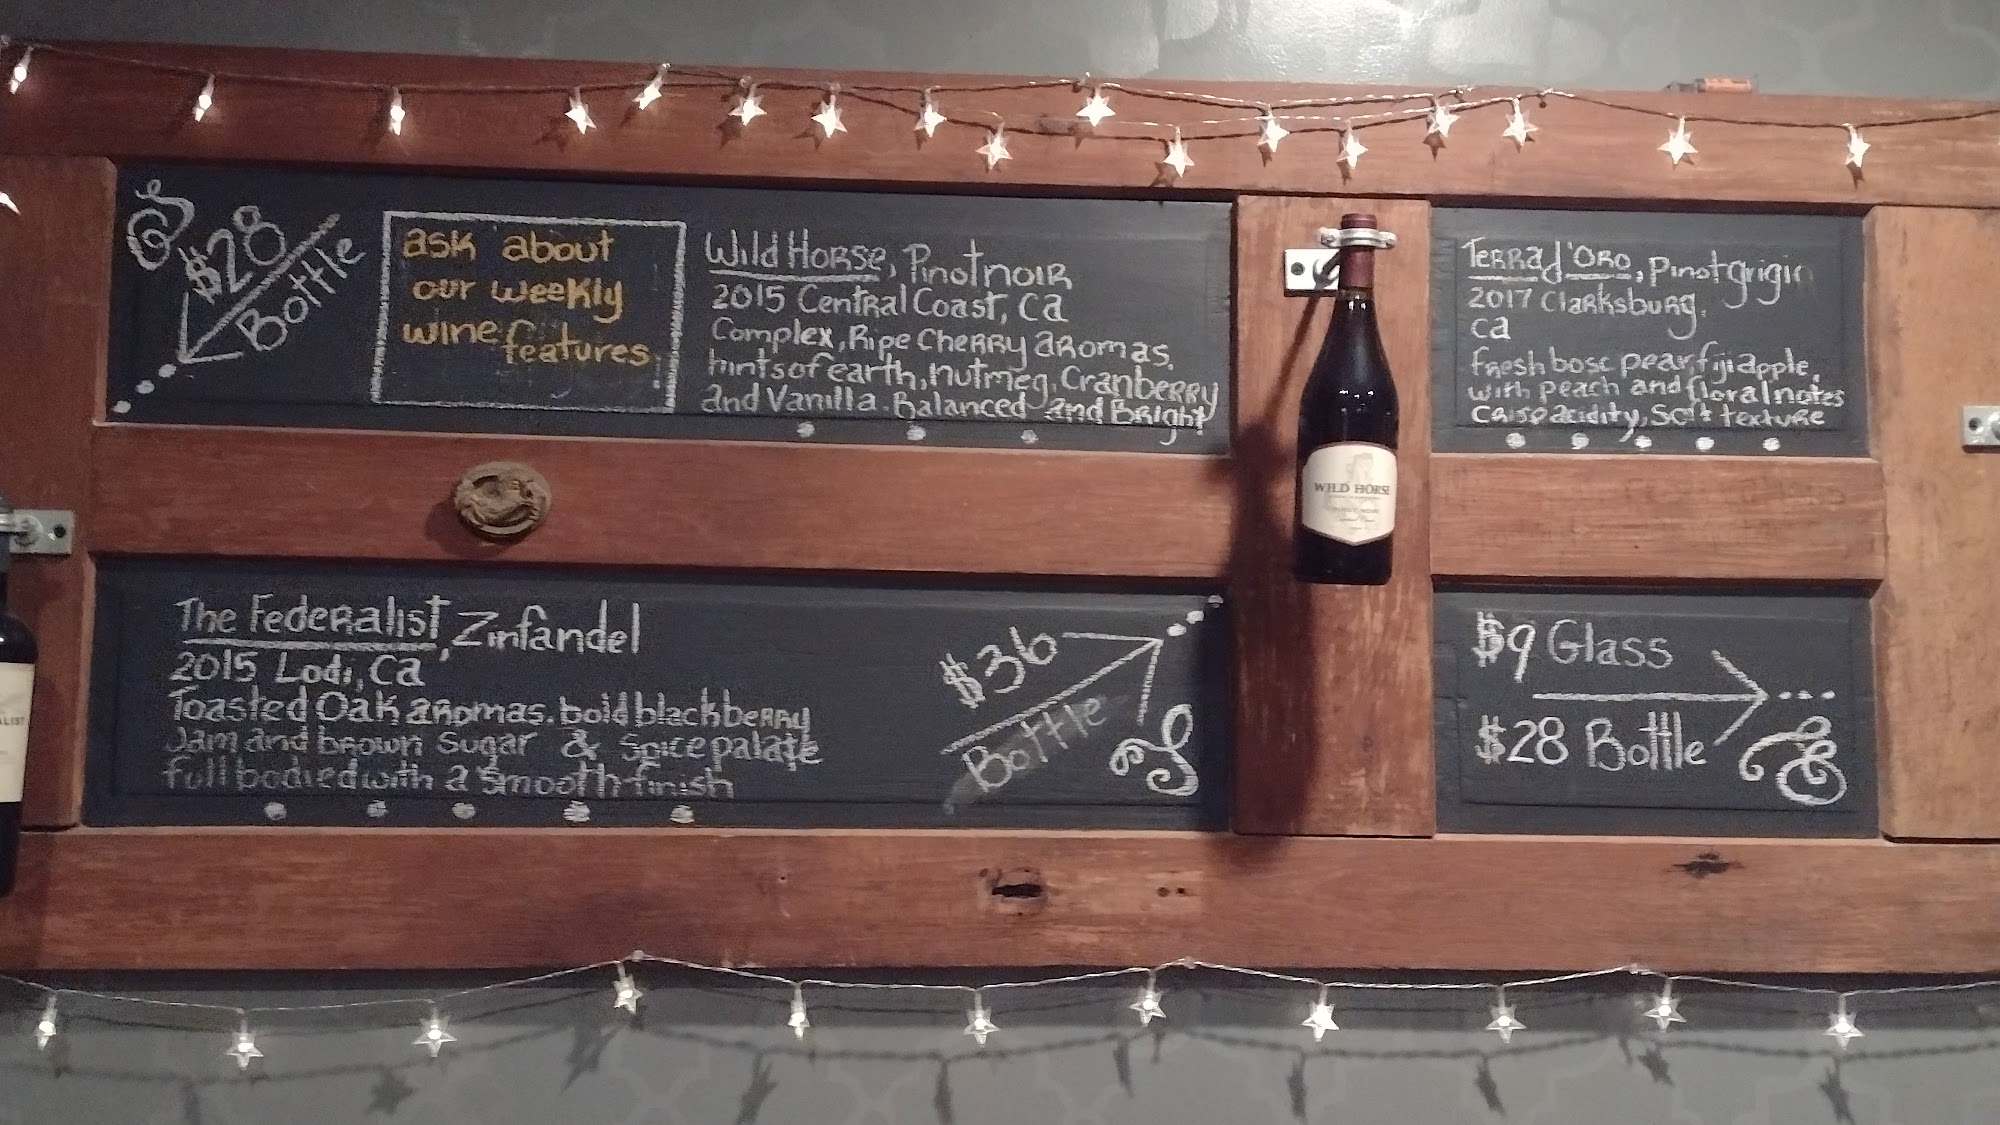 $28
Bottle
ask about
our weekly
wine features
Wild Horse, Pinot noir
2015 Central Coast, Ca
Complex, Ripe Cherry aromas,
hints of earth, nutmeg, Cranberry
and Vanilla. Balanced and Bright
Terra d'Oro, pinot grigio
2017 Clarksburg,
Ca
fresh bosc pear, fiji apple,
with peach and floral notes
Crisp acidity, soft texture
WILD HORSE
PINOT NOIR
The Federalist, Zinfandel
2015 Lodi, Ca
Toasted Oak aromas. bold blackberry
Jam and brown sugar & spice palate
full bodied with a smooth finish
$36
Bottle
$9 Glass
$28 Bottle
ALIST